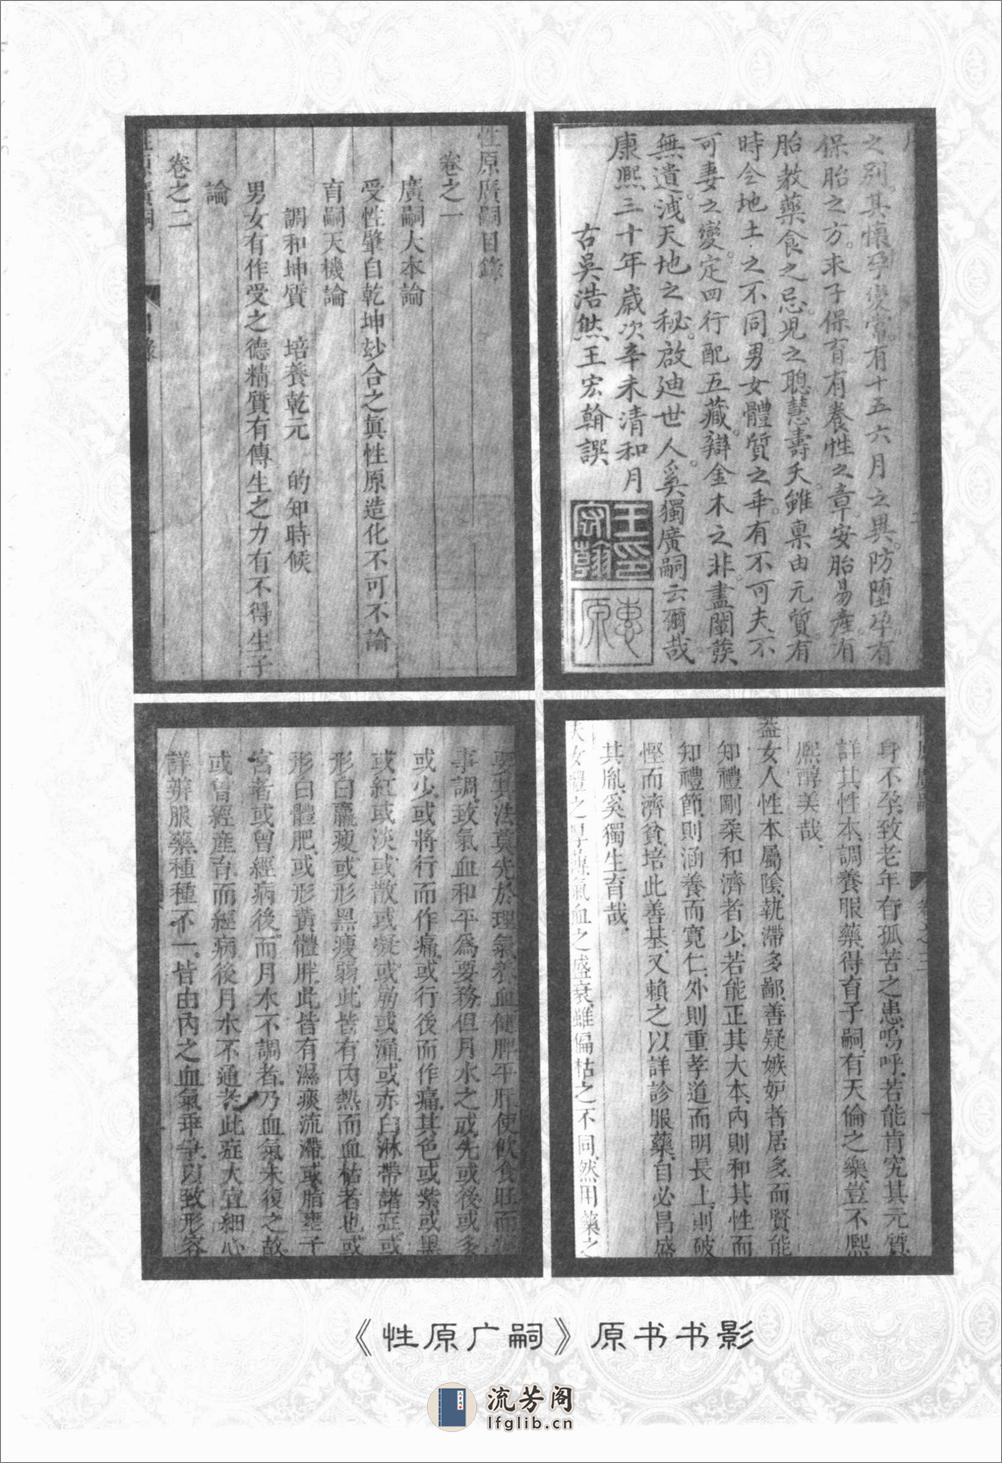 之別其懷孕變常有十五六月之異防墮卒有
保胎之方未子保育有養性之章安胎易產有
胎教藥食之忌兒之聰慧壽夭雖稟由元質有
時令地土之不同男女體質之乖有不可夫不
可妻之變定四行配五藏辯金木之非盡闡蔟
無遺洩天地之秘啟迪世人奚獨廣嗣云爾哉
康熙三十年歲次辛未清和月
古吳浩然王宏翰譔
性原廣嗣目錄
卷之一
廣嗣大本論
受性肇自乾坤妙合之真性原造化不可不論
育嗣天機論
調和坤質 培養乾元 的知時候
男女有作受之德精質有傳生之力有不得生子
論
卷之二
身不孕致老年有孤苦之患嗚呼若能肯究其元質
詳其性本調養服藥得育子嗣有天倫之樂豈不熙
熙醇美哉
蓋女人性本屬陰執滯多鄙善疑嫉妒者居多而賢能
知禮剛柔和濟者少若能正其大本內則和其性而
知禮節則涵養而寬仁外則重孝道而明長上則破
慳而濟貧培此善基又賴之以詳診服藥自必昌盛
其胤奚獨生育哉
夫女體之厚薄氣血之盛衰雖偏枯之不同然用藥之
要其法莫先於理氣養血健脾平肝使飲食旺而
事調致氣血和平為要務但月水之或先或後或多
或少或將行而作痛或行後而作痛其色或紫或黑
或紅或淡或散或凝或崩或漏或赤白淋帶諸症或
形白羸瘦或形黑瘦弱此皆有內熱而血枯者也或
形白體肥或形黃體胖此皆有濕痰流滯或脂壅子
宮者或曾經病後而月水不調者乃血氣未復之故
或曾經產育而經病後月水不通者此症大宜細心
詳辨服藥種種不一皆由內之血氣乖爭以致形容
《性原广嗣》原书书影
流芳阁
lfglib.cn